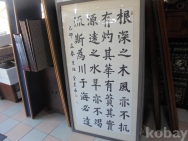 根深之木風亦不扤
有灼其華有蕡其實
源遠之水旱亦不竭
流斯爲川于海必達
kobay